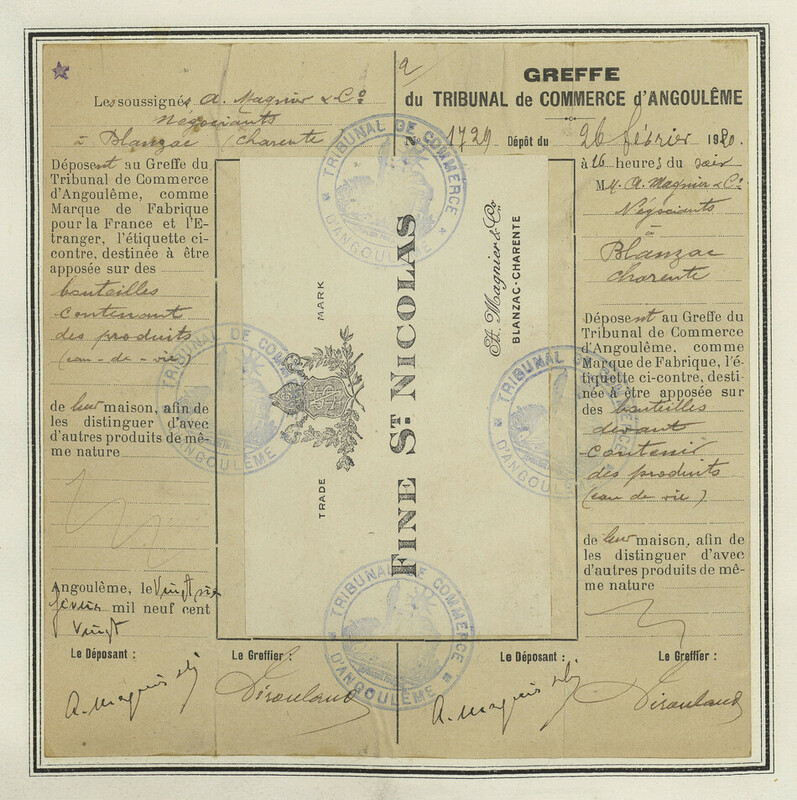 Les soussignés A. Magnier & Co
Négociants
à Blanzac Charente
Déposent au Greffe du
Tribunal de Commerce
d'Angoulême, comme
Marque de Fabrique
pour la France et l'E-
tranger, l'étiquette ci-
contre, destinée à être
apposée sur des
bouteilles
contenant
des produits
(eau-de-vie)
de leur maison, afin de
les distinguer d'avec
d'autres produits de mê-
me nature
Angoulême, le Vingt six
février mil neuf cent
vingt
Le Déposant :
Le Greffier :
A. Magnier
TRADE MARK
FINE ST. NICOLAS
A. Magnier & Co.
BLANZAC-CHARENTE
TRIBUNAL DE COMMERCE
D'ANGOULÊME
TRIBUNAL DE COMMERCE
D'ANGOULÊME
TRIBUNAL DE COMMERCE
D'ANGOULÊME
TRIBUNAL DE COMMERCE
D'ANGOULÊME
GREFFE
du TRIBUNAL de COMMERCE d'ANGOULÊME
No 1729 Dépôt du 26 février 1920.
à 16 heures du soir
MM. A. Magnier & Co
Négociants
à
Blanzac
Charente
Déposent au Greffe du
Tribunal de Commerce
d'Angoulême, comme
Marque de Fabrique, l'é-
tiquette ci-contre, desti-
née à être apposée sur
des bouteilles
devant
contenir
des produits
(eau de vie)
de leur maison, afin de
les distinguer d'avec
d'autres produits de mê-
me nature
Le Déposant :
Le Greffier :
A. Magnier